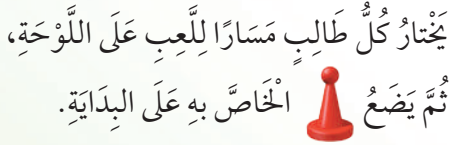 يَخْتارُ كُلُّ طَالِبٍ مَسَارًا لِلَّعِبِ عَلَى اللَّوْحَةِ،
ثُمَّ يَضَعُ الْخَاصَّ بهِ عَلَى البِدَايَةِ.